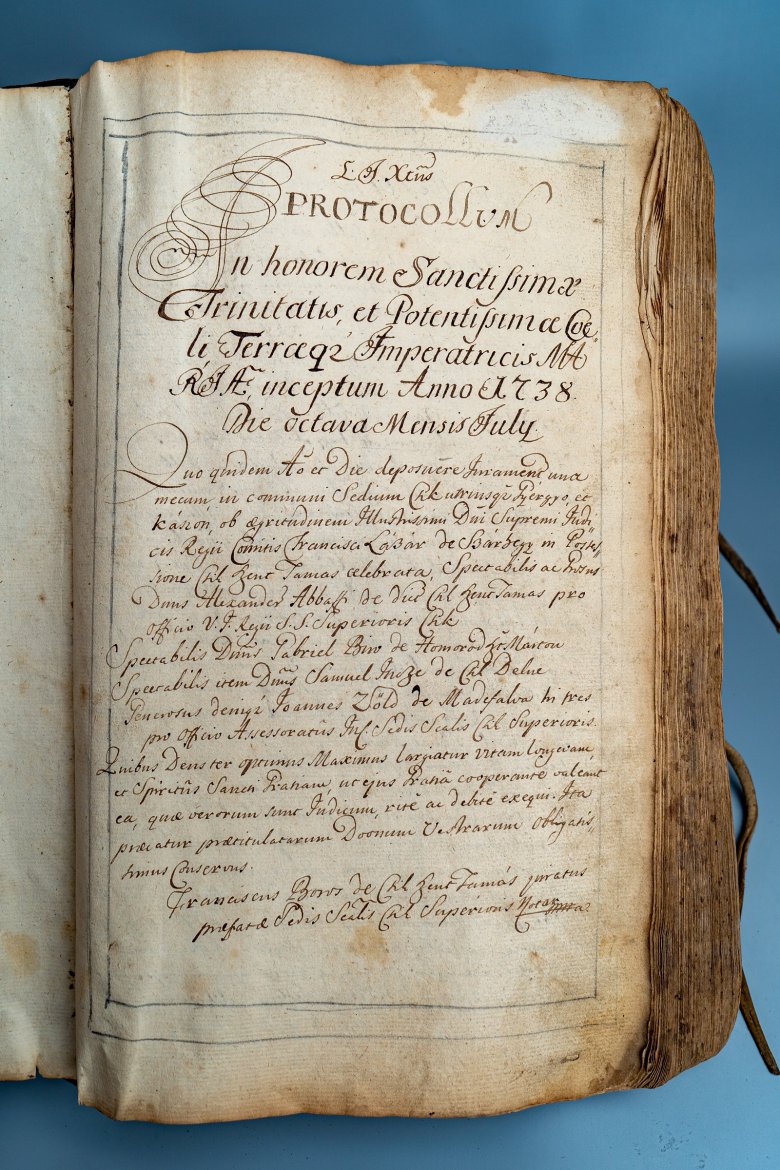 L. J. Xtũs
PROTOCOLLUM
In honorem Sanctissimæ
Trinitatis, et Potentissimæ Coe„
li, Terræqz Imperatricis MA
RIÆ, inceptum Anno 1738.
Die octava Mensis July
Quo quidem Aõ et Die deposuere Jurament una
mecum, in communi Sedium Csik utriusqz Gyergyo, et
Kászon, ob ægritudinem Illustrissimi Dñi Supremi Judi„
cis Regii Comitis Francisci Lázár de Szárhegy in Posses„
sione Csik Szent Tamas celebrata, Spectabilis ac
Dnus Alexander Abbaffi de Csik Szent Tamas pro
officio V. J. Regii S. S. Superioris Csik
Spectabilis Dnus Gabriel Biro de Homorod Sz Márton
Spectabilis item Dnus Samuel de Csik Delne
Generosus deniqz Joannes Zöld de Madefalva hi tres
pro officio Assessoratus Sedis Sclis Csik Superioris.
Quibus Deus ter optimus Maximus largiatur vitam longævam,
et Spiritus Sancti Gratiam, ut ejus Gratiâ cooperante valeant
ea, quæ verorum sunt Judicum, rite ac debitè exequi. Ita
præcatur prætitulatarum Doonum Vestrarum obligatis„
simus Conservus.
Franciscus Boros de Csik Szent Tamás juratus
præfatæ Sedis Sclis Csik Superioris